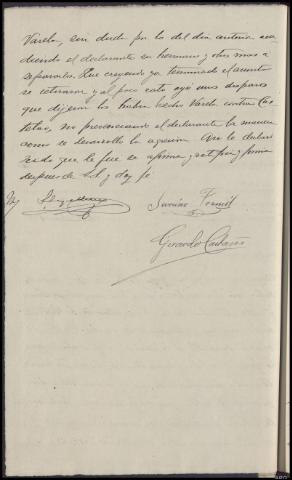 Varela, sin duda por lo del dia anterior acu
diendo el declarante su hermano y otros mas a
separarlos. Que creyendo ya terminado el asunto
se retiraron y al poco rato oyó unos disparos
que dijeron los había hecho Varela contra Cas
telao, no presenciando el declarante la manera
como se desarrolló la agresion. Asi lo declara
Leido que le fue se afirma y ratifica y firma
despues de S.S. y doy fe
Gerardo Castaño